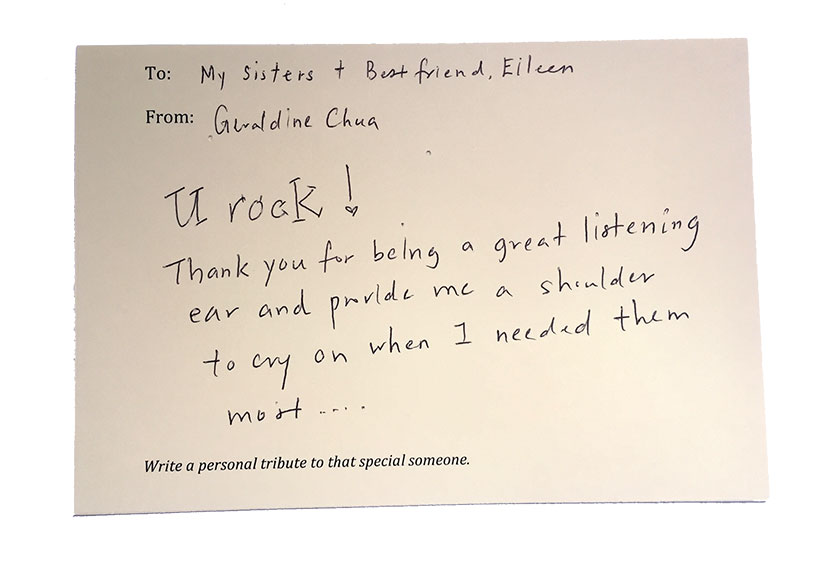 To: My Sisters + Best friend, Eileen
From: Geraldine Chua
U rock!
Thank you for being a great listening
ear and provide me a shoulder
to cry on when I needed them
most ....
Write a personal tribute to that special someone.